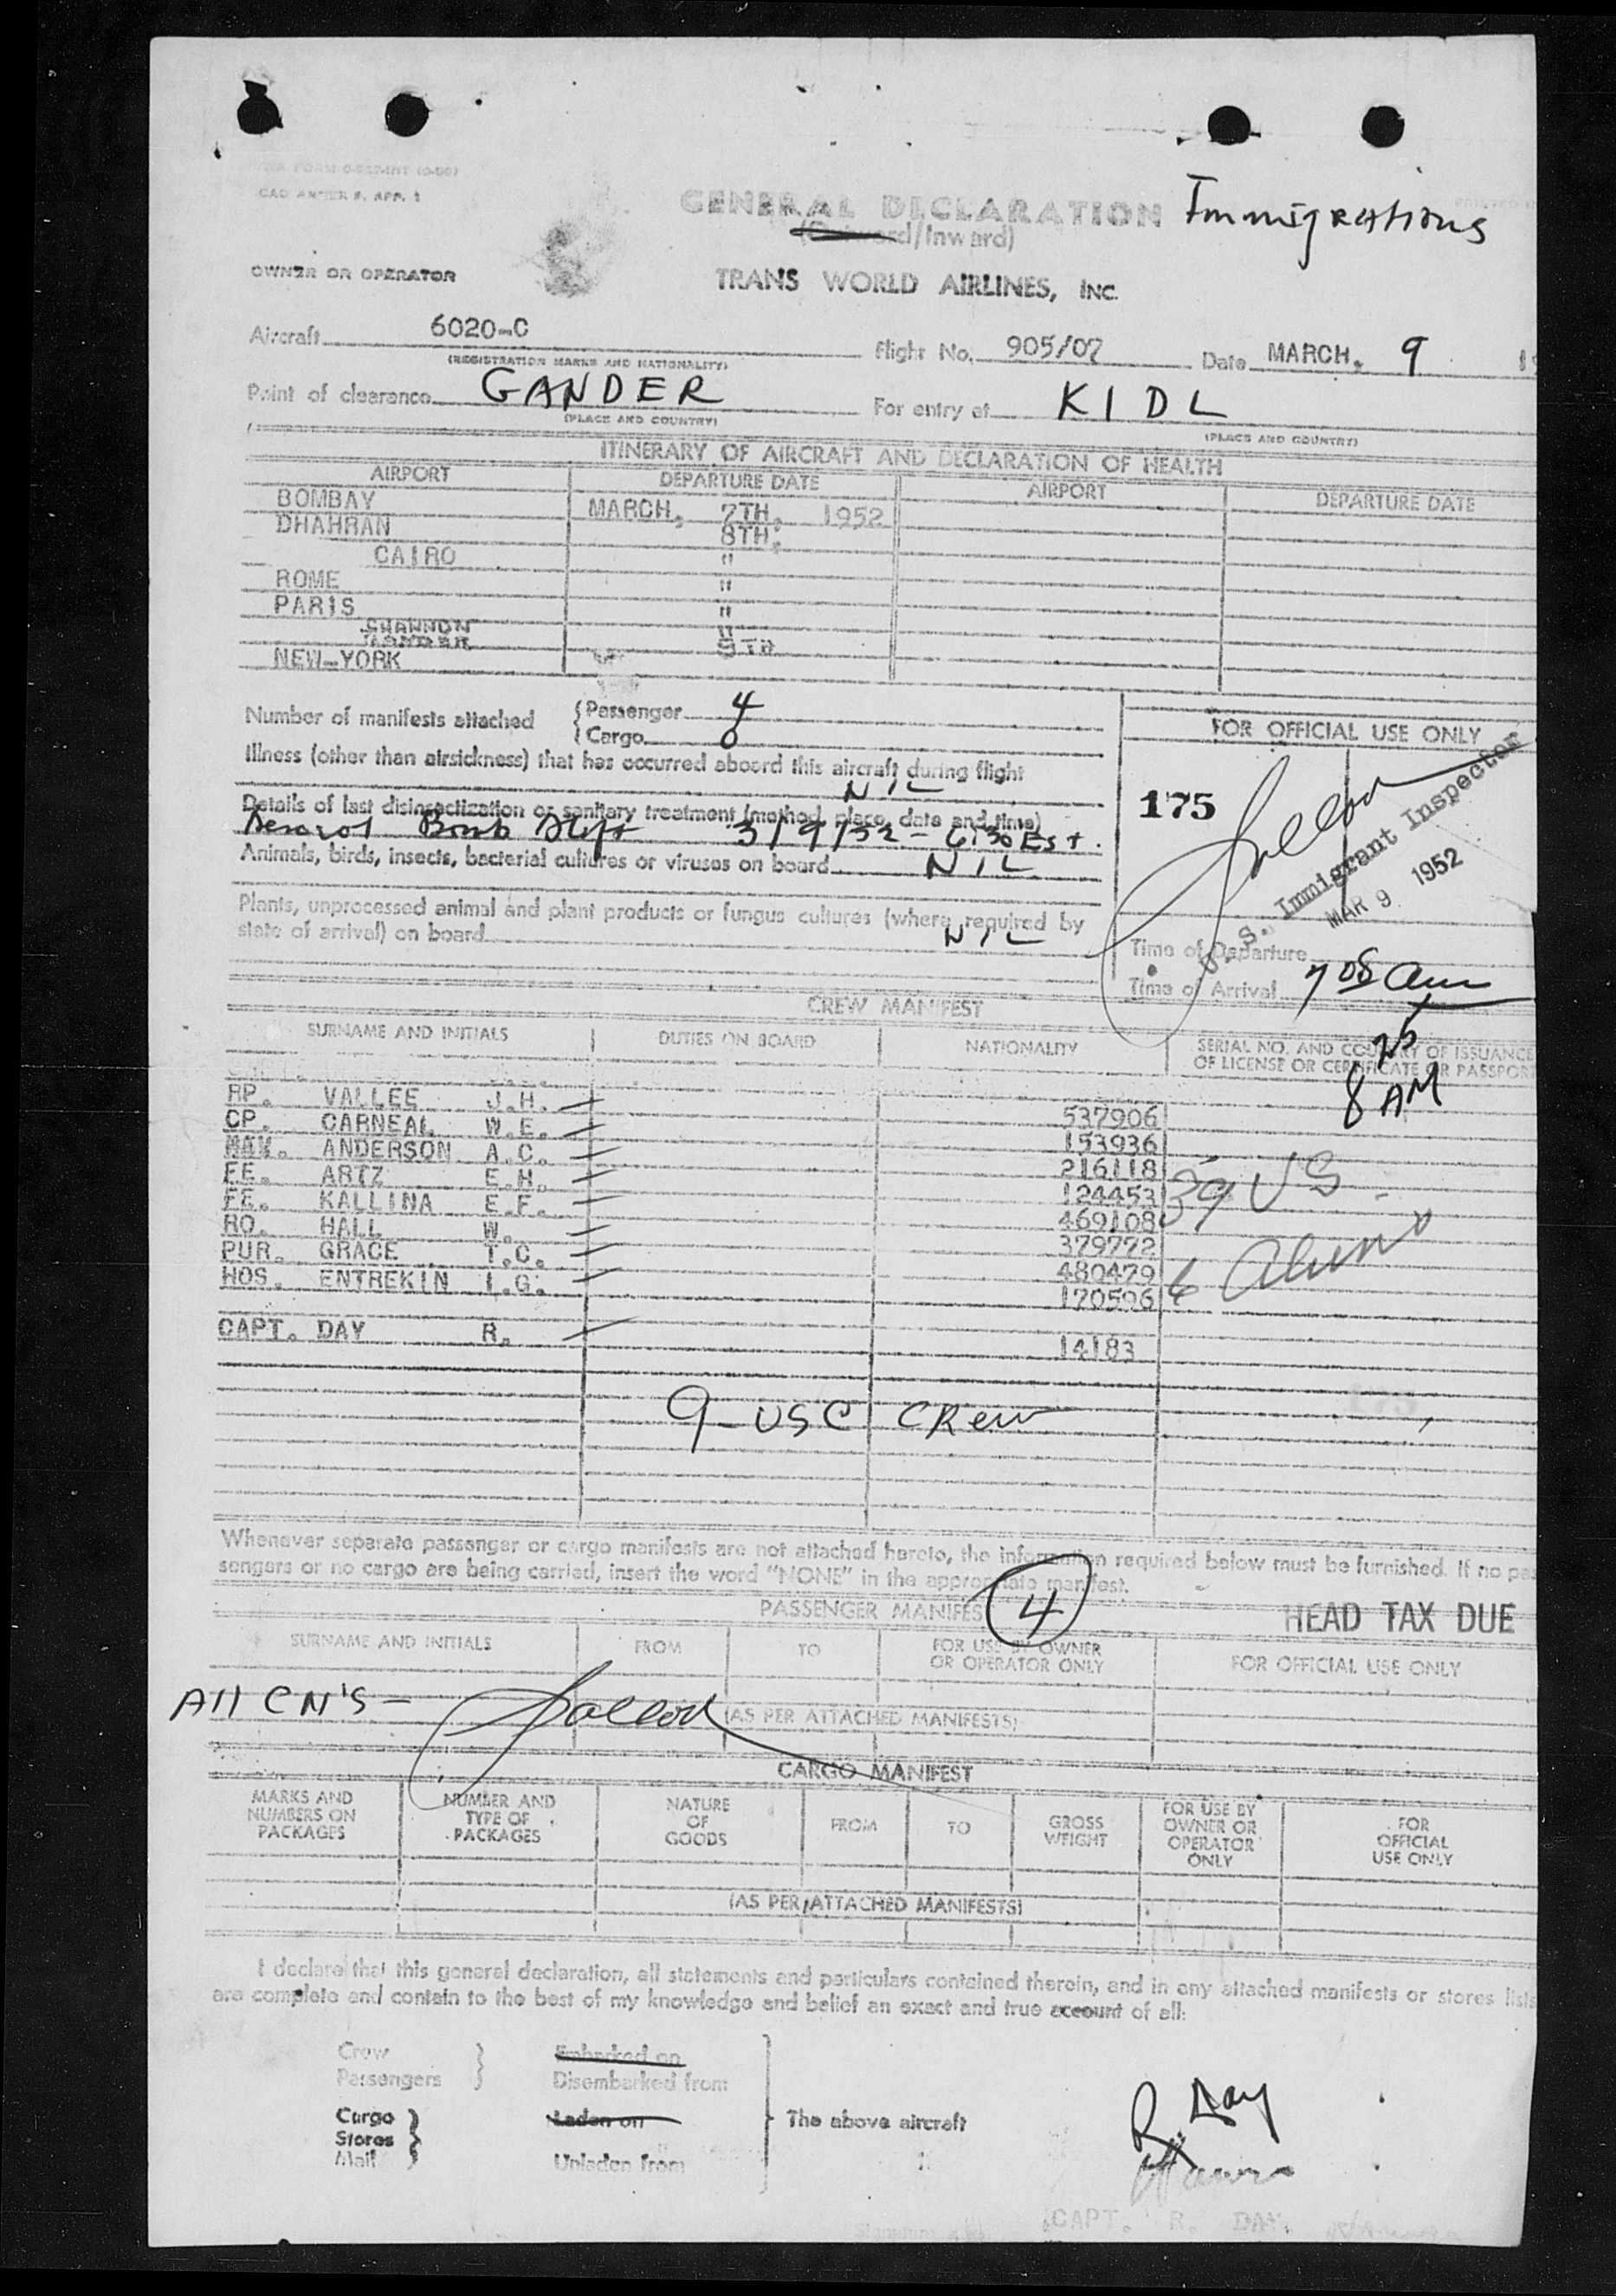 CAO ANNEX 9, APP. 1
GENERAL DECLARATION Immigrations
(Outward/Inward)
OWNER OR OPERATOR TRANS WORLD AIRLINES, INC.
Aircraft 6020-C Flight No. 905/07 Date MARCH, 9 19
(REGISTRATION MARKS AND NATIONALITY)
Point of clearance GANDER For entry at KIDL
(PLACE AND COUNTRY) (PLACE AND COUNTRY)
ITINERARY OF AIRCRAFT AND DECLARATION OF HEALTH
AIRPORT DEPARTURE DATE AIRPORT DEPARTURE DATE
BOMBAY MARCH, 7TH, 1952
DHAHRAN 8TH.
CAIRO "
ROME "
PARIS "
SHANNON "
GANDER 9TH
NEW YORK
Number of manifests attached { Passenger 4
{ Cargo 0
FOR OFFICIAL USE ONLY
Illness (other than airsickness) that has occurred aboard this aircraft during flight
NIL
175
Details of last disinsectization or sanitary treatment (method, place, date and time)
Aerosol Bomb 3/9/52 - 6:30 Est.
Animals, birds, insects, bacterial cultures or viruses on board NIL
U. S. Immigrant Inspector
MAR 9 1952
Plants, unprocessed animal and plant products or fungus cultures (where required by
state of arrival) on board NIL
Time of Departure
Time of Arrival 7 05 am
CREW MANIFEST
SURNAME AND INITIALS DUTIES ON BOARD NATIONALITY SERIAL NO. AND COUNTRY OF ISSUANCE
OF LICENSE OR CERTIFICATE OR PASSPORT
25
8 AM
RP. VALLEE J.H. 537906
CP. CARNEAL W.E. 153936
NAV. ANDERSON A.C. 216118
FE. ARTZ E.H. 124453 39 US -
FE. KALLINA E.F. 469108
RO. HALL W. 379772
PUR. GRACE T.C. 480479
HOS. ENTREKIN I.G. 170596 6 Aliens
CAPT. DAY R. 14183
175
9-USC CREW
Whenever separate passenger or cargo manifests are not attached hereto, the information required below must be furnished. If no pas
sengers or no cargo are being carried, insert the word "NONE" in the appropriate manifest.
PASSENGER MANIFEST 4 HEAD TAX DUE
SURNAME AND INITIALS FROM TO FOR USE BY OWNER
OR OPERATOR ONLY FOR OFFICIAL USE ONLY
All CN'S -
(AS PER ATTACHED MANIFESTS)
CARGO MANIFEST
MARKS AND NUMBERS ON PACKAGES NUMBER AND TYPE OF PACKAGES NATURE OF GOODS FROM TO GROSS WEIGHT FOR USE BY OWNER OR OPERATOR ONLY FOR OFFICIAL USE ONLY
(AS PER ATTACHED MANIFESTS)
I declare that this general declaration, all statements and particulars contained therein, and in any attached manifests or stores lists
are complete and contain to the best of my knowledge and belief an exact and true account of all:
Crew Embarked on
Passengers Disembarked from
Cargo Laden on The above aircraft
Stores
Mail Unladen from
R. Day
CAPT. R. DAY.